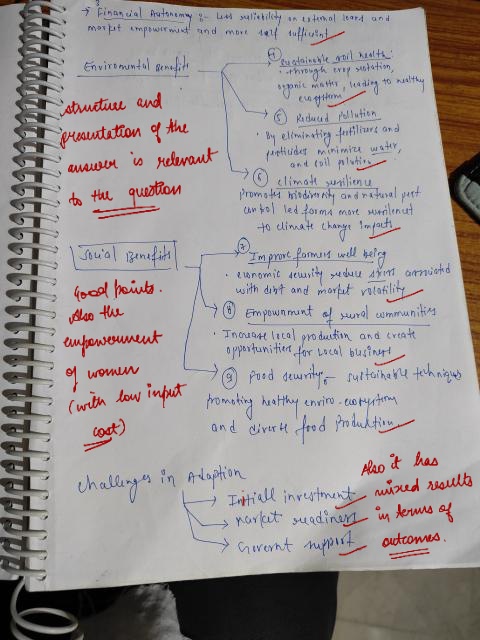 → Financial Autonomy :- Less reliability on external loans and
market empowerment and more self sufficient
Enviromental Benefits
④ Sustainable soil health:
• through crop rotation,
organic matter, leading to healthy
ecosystem
⑤ Reduced Pollution
• By eliminating fertilizers and
pesticides minimize water,
and soil polution
⑥ climate resilience
promotes biodiversity and natural pest
control led farms more resilient
to climate change impacts
structure and
presentation of the
answer is relevant
to the question
Social Benefits
⑦ Improve farmers well being
• economic security reduce stress associated
with debt and market volatility
⑧ Empowerment of rural communities
• Increase local production and create
opportunities for local business
⑨ Food security - sustainable techniques
promoting healthy enviro-ecosystem
and diverse food production
Good points.
Also the
empowerment
of women
(with low input
cost)
Challenges in Adaption
→ Initiall investment
→ market readiness
→ Goverment support
Also it has
mixed results
in terms of
outcomes.